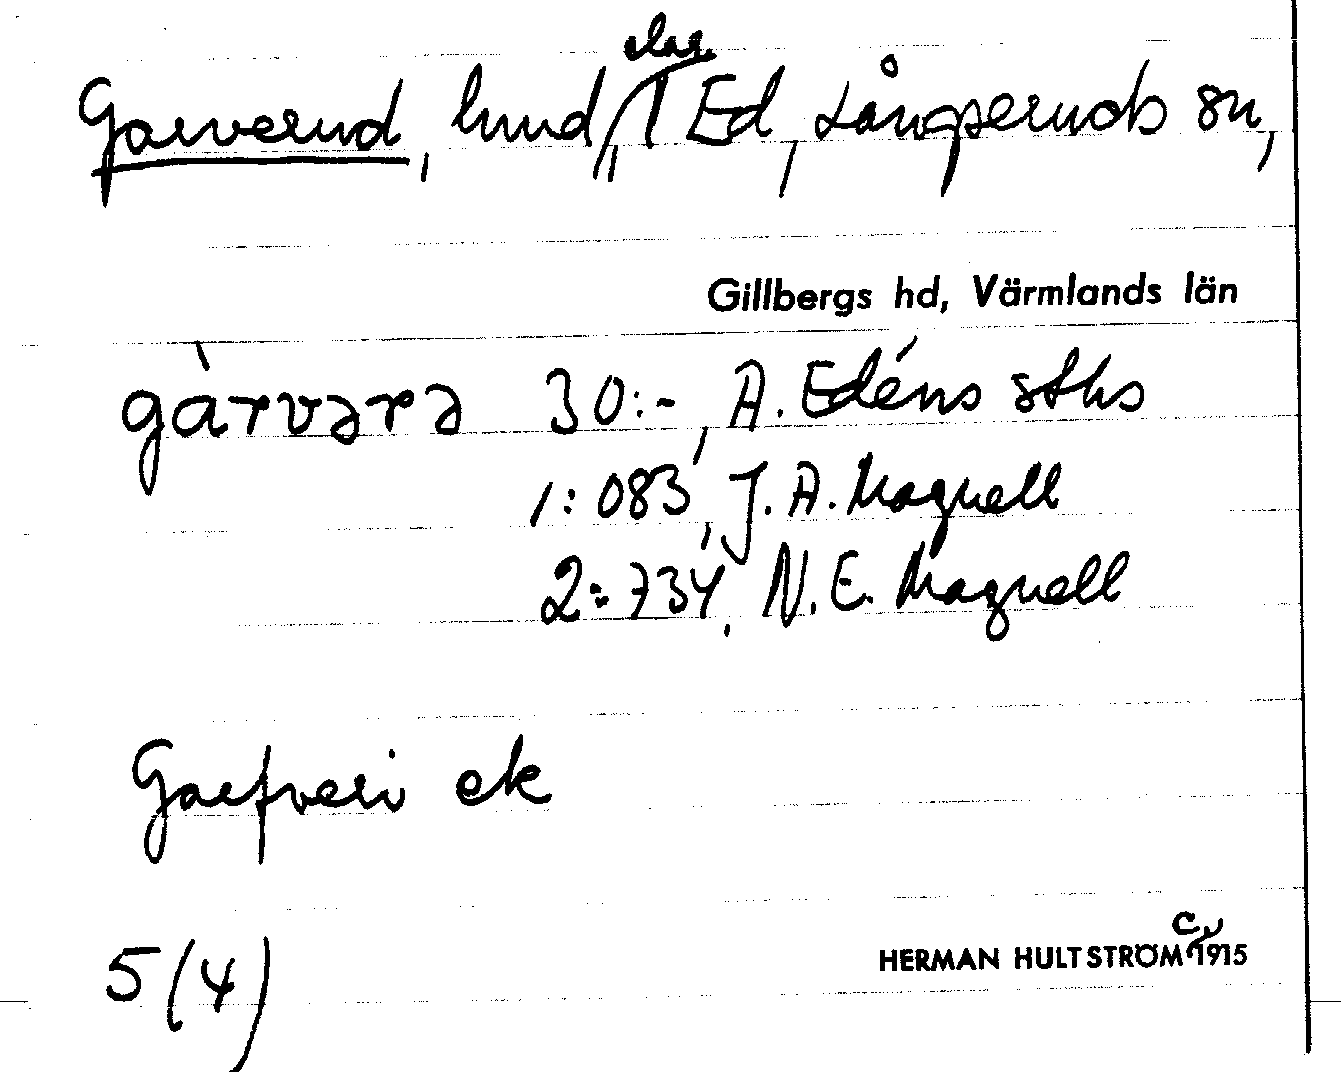 Garverud, hmd, i Ed, Långseruds sn,
Gillbergs hd, Värmlands län
gàrvərə 30:-, A. Edéns sthus
1:083, J. A. Magnell
2:734, N. E. Magnell
Garfveri ek
5(4)
HERMAN HULTSTRÖM 1915